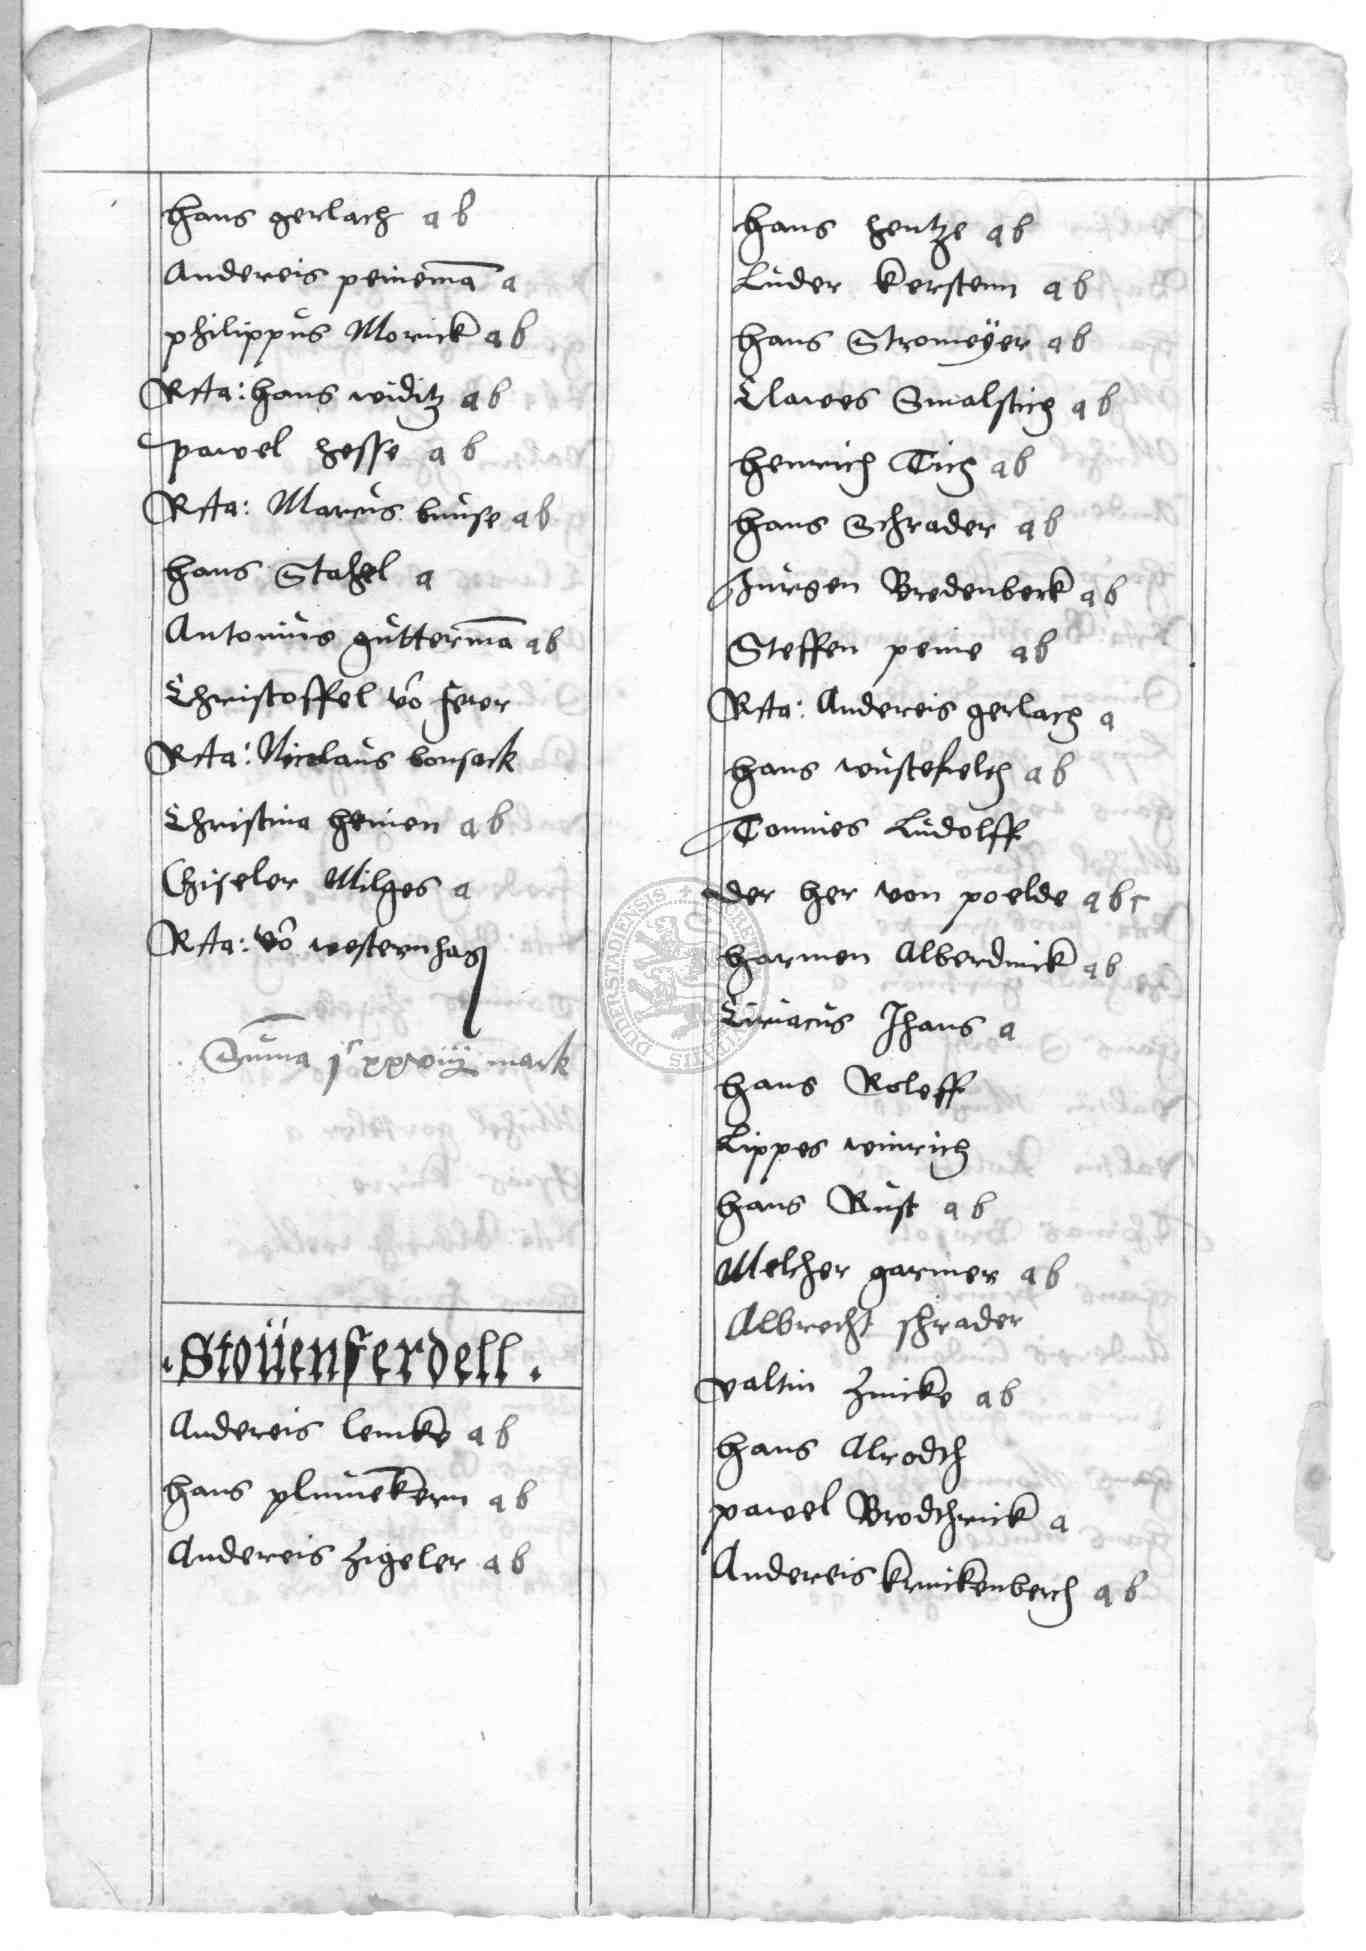 hans gerlach a b
Andereis peinemā a
philippus Morick a b
Rcta: hans widitz a b
pawel hesse a b
Rcta: Marcus buuse a b
hans Stahel a
Antonius gutermā a b
Christoffel vō
Rcta: Nicolaus bonsack
Christina heinen a b
Giseler Milges a
Rcta: vō westernhagē
Sum̄a jᶜ xxviij mark
Stoüenferdell.
Andereis lemke a b
hans plumēkern a b
Andereis zigeler a b
hans hentze a b
Luder kerstenn a b
hans Stromeÿer a b
Clawes Smalstich a b
henrich Tich a b
hans Schrader a b
Jurgen Bredenbeck a b
Steffen peine a b
Rcta: Andereis gerlach a
hans wustefelch a b
Tonnies Ludolff
der her von poelde a b c
harmen Alberdinck a b
Ciriacus Jhans a
hans Roleff
Lippes winrich
hans Rust a b
Melcher garmer a b
Albrecht schrader
valtin zincke a b
hans Alrodt
pawel Brodthrück a
Andereis krinckenberch a b
DUDERSTADIENSIS